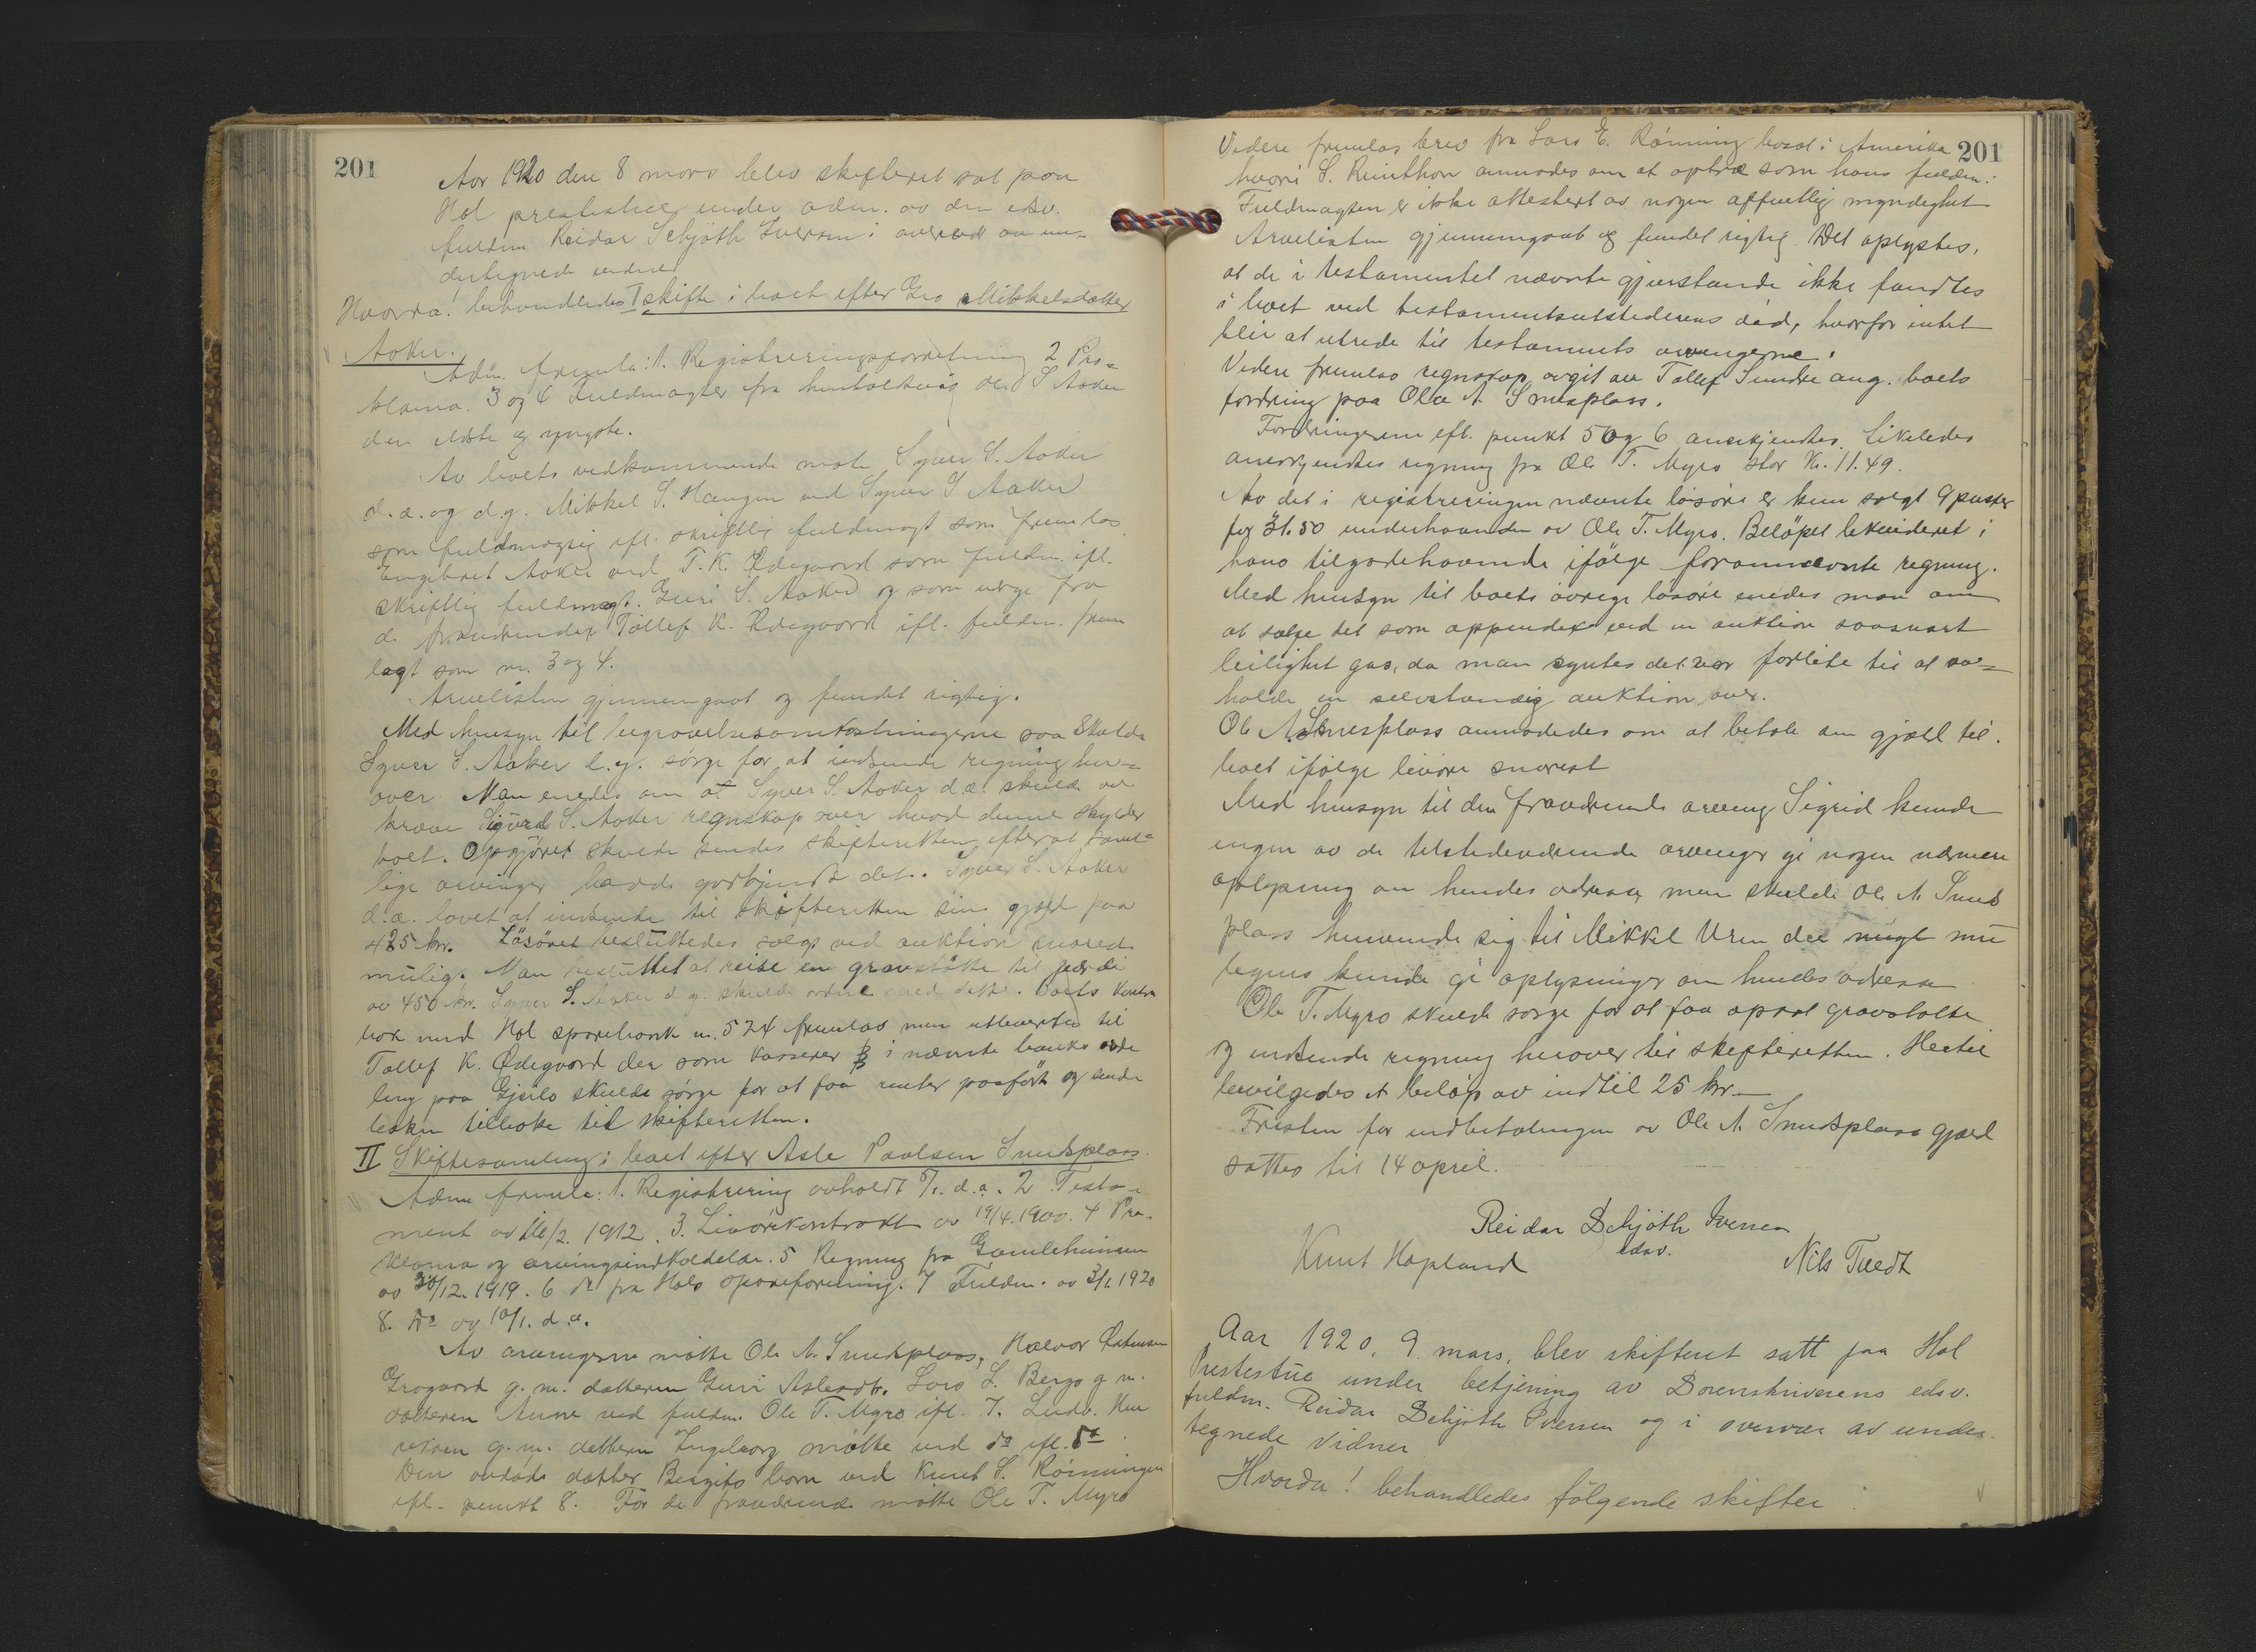 201
Aar 1920 den 8 mars blev skifteret sat paa
Hol prestestue under adm. av den edsv.
fuldm Reidar Schjöth Iversen i overvær av un=
dertegnede vidner
Hvorda! behandledes I skifte i boet efter Gro Mikkelsdatter
Aaker.
Adm. fremla: 1. Registreringsforretning 2 Pro=
klama. 3 og 4 Fuldmagter fra henholdsvis S Aaker
den eldste og yngste.
Av boets vedkommende møtte Syver S. Aaker
d.æ. og d.y. Mikkel S. Haugen ved Syver S Aaker
som fuldmægtig ifl. skriftlig fuldmagt som fremlas
Engebret Aaker ved T. K. Ødegaard som fuldm. ifl.
skriftlig fuldmagt. Guri S. Aaker og som verge fra
de fraværende Tollef K. Ødegaard ifl. fuldm. frem
lagt som nr. 3 og 4.
Arvelisten gjennemgaat og fundet rigtig.
Med hensyn til begravelsesomkostningerne saa skulde
Syver S. Aaker d.y. sørge for at indsende regning her=
over. Man enedes om at Syver S. Aaker d.æ. skulde av
kræve Sigurd S. Aaker regnskap over hvad denne skylder
boet. Opgjøret skulde sendes skifteretten efterat samt=
lige arvinger havde godkjendt det. Syver S. Aaker
d.æ. lovet at indsende til skifteretten sin gjæld paa
425 kr. Løsöret besluttedes solgt ved auktion snarest
mulig. Man besluttet at reise en gravstötte til værdi
av 450 kr. Syver S. Aaker d.y. skulde ordne med dette. Boets kontra
bok med Hol sparebank nr. 524 fremlas men utleveres til
Tollef K. Ødegaard der som kasserer i nævnte banks avde
ling paa Gjeilo skulde sörge for at faa renter paafört og sende
boken tilbake til skifteretten.
II Skiftesamling i boet efter Asle Paalsen Snedsplass.
Adm fremla: 1. Registrering avholdt 5/1. d.a. 2 Testa-
ment av 16/2. 1912. 3. Livörekontrakt av 19/4. 1900. 4 Pro-
klama og arvingsindkaldelse. 5 Regning fra Gamlehimmen
av 30/12. 1919. 6 do fra Hols spareforening. 7 Fuldm. av 3/1. 1920
8. Do av 10/1. d.a.
Av arvingerne mötte Ole A. Snedsplass, Halvor Østensen
Grogaard g.m. datteren Guri Aslesdtr. Lars L. Berge g m.
datteren Anne ved fuldm. Ole T. Myro ifl. 7. Ludv.
g.m. datteren Ingeborg mötte ved do ifl. do
Den avdöde datter Birgits barn ved Knut S. Rönningen
ifl. punkt 8. For de fraværende mötte Ole T. Myro
201
Videre fremlas brev fra Lars E. Rönning bosat i Amerika
hvori S. Rinthon anmodes om at optræ som hans fuldm.
Fuldmagten er ikke attestert av nogen offentlig myndighet
Arvelisten gjennemgaat og fundet rigtig. Det oplystes,
at de i testamentet nævnte gjenstande ikke fandtes
i boet ved testamentsutstederens död, hvorfor intet
blir at utrede til testaments arvingerne.
Videre fremlas regnskap avgit av Tollef Sundre ang. boets
fordring paa Ola A. Snesplass.
Fordringerne efl. punkt 5 og 6 anerkjendtes. Likeledes
anerkjendtes regning fra Ole T. Myro stor Kr. 11.49.
Av det i registreringen nævnte lösöre er kun solgt 9 poster
for 31.50 underhaanden av Ole T. Myro. Belöpet likvideret i
hans tilgodehavende ifölge forannævnte regning.
Med hensyn til boets övrige lösöre enedes man om
at sælge det som appendix ved en auktion saasnart
leilighet gas, da man syntes det var forlite til at av=
holde en selvstændig auktion over.
Ole A. Snesplass anmodedes om at betale sin gjæld til
boet ifölge livöre snarest
Med hensyn til den fraværende arving Sigrid kunde
ingen av de tilstedeværende arvinger gi nogen nærmere
oplysning om hendes adresse men skulde Ole A. Sneds
plass henvende sig til Mikkel Uren der muligens
kunde gi oplysninger om hendes adresse
Ole T. Myro skulde sörge for at faa opsat gravstötte
og indsende regning herover til skifteretten. Hertil
bevilgedes et belöp av indtil 25 kr.
Fristen for indbetalingen av Ole A. Snedsplass gjæld
sattes til 14 april.
Reidar Schjöth Iversen
edsv.
Knut Hapland
Nils Tuedt
Aar 1920, 9 mars, blev skifteret satt paa Hol
Prestestue under betjening av Sorenskriverens edsv.
fuldm. Reidar Schjöth Iversen og i overvær av under-
tegnede vidner
Hvorda! behandledes fölgende skifter: